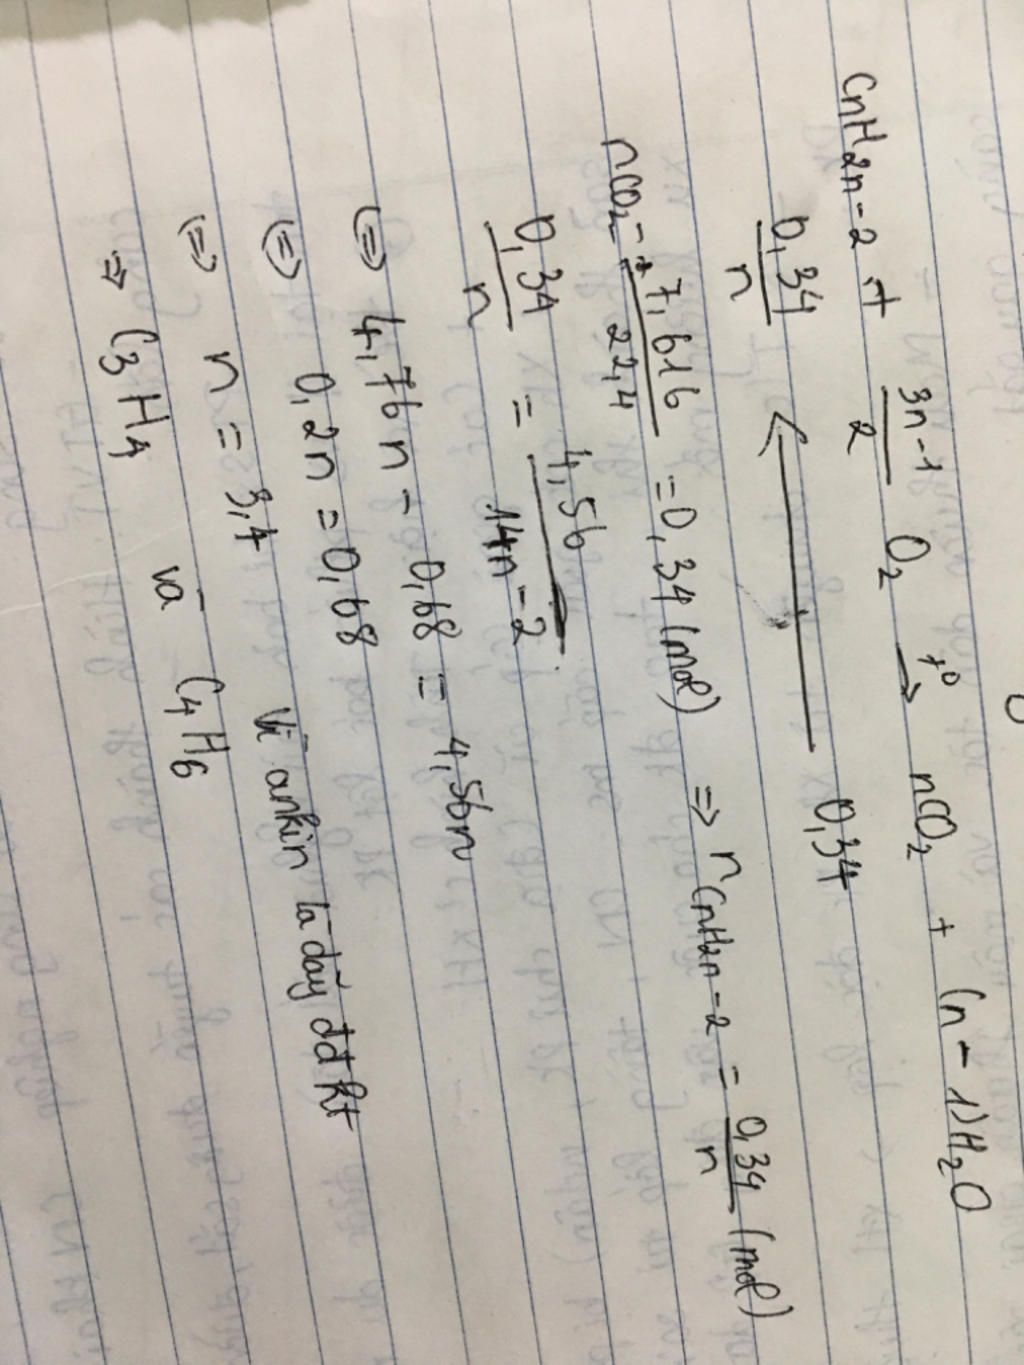 CnH2n-2 + 3n-1/2 O2 →t° nCO2 + (n-1)H2O
0,34/n ← 0,34
nCO2 = 7,616/22,4 = 0,34 (mol) => nCnH2n-2 = 0,34/n (mol)
0,34/n = 4,56/14n-2
(=) 4,76n - 0,68 = 4,56n
(=) 0,2n = 0,68
(=) n = 3,4 Vì ankin là dãy đđ kt
=> C3H4 và C4H6